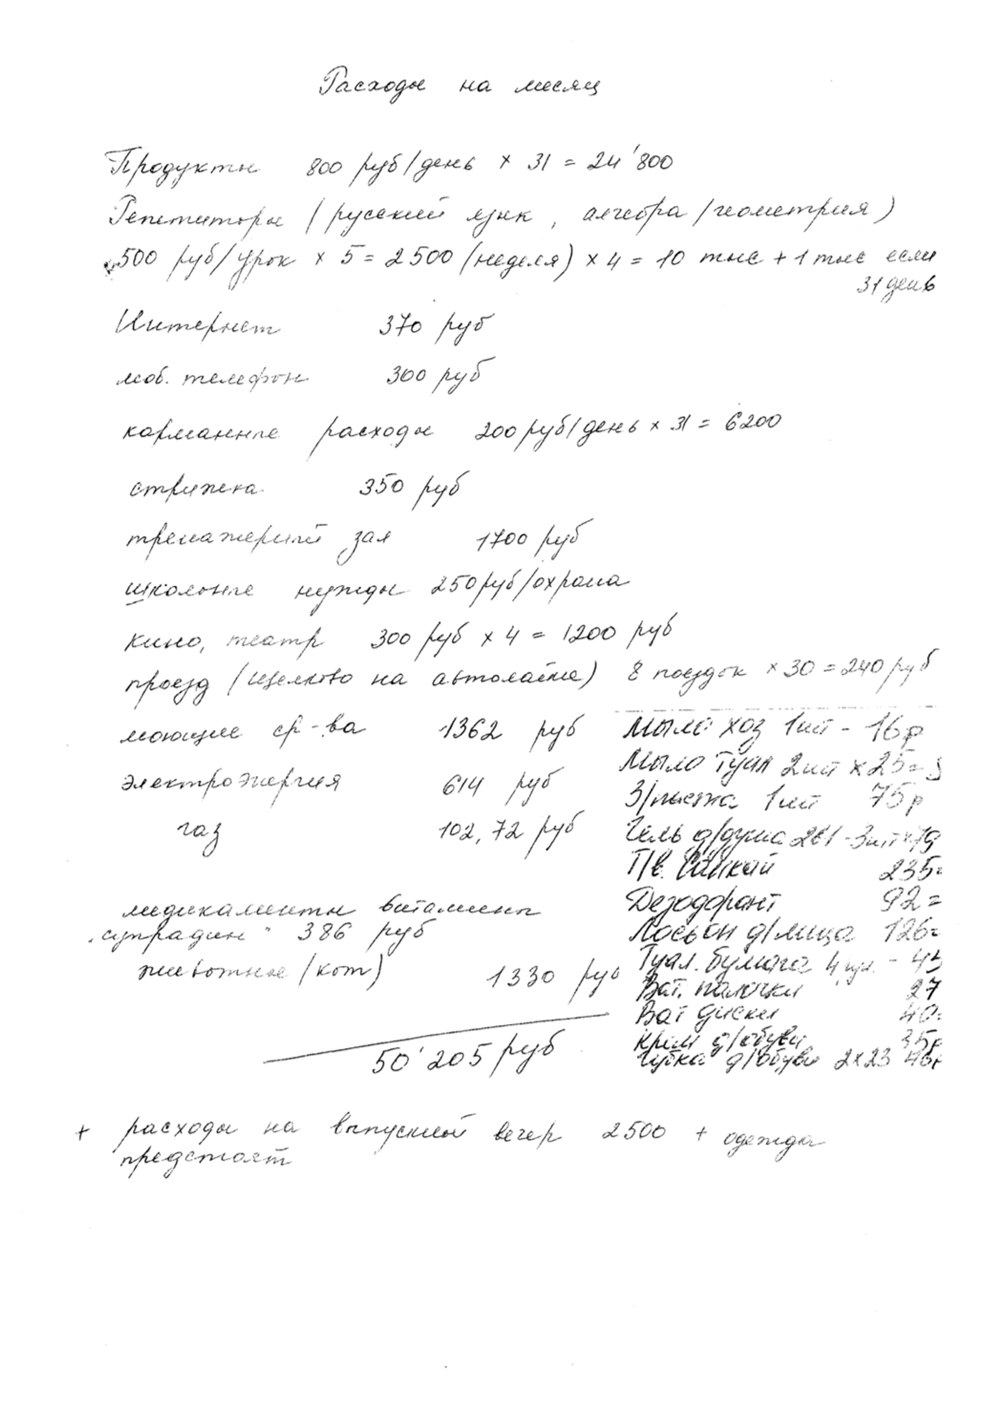 Расходы на месяц
Продукты 800 руб/день × 31 = 24'800
Репетиторы (русский язык, алгебра/геометрия)
500 руб/урок × 5 = 2500 (неделя) × 4 = 10 тыс + 1 тыс если
31 день
Интернет 370 руб
моб. телефон 300 руб
карманные расходы 200 руб/день × 31 = 6200
стрижка 350 руб
тренажерный зал 1700 руб
школьные нужды 250 руб/охрана
кино, театр 300 руб × 4 = 1200 руб
проезд (Щелково на автолайне) 8 поездок × 30 = 240 руб
моющие ср-ва 1362 руб
электроэнергия 614 руб
газ 102,72 руб
медикаменты витамины
"супрадин" 386 руб
животные (кот) 1330 руб
50'205 руб
Мыло хоз 1шт - 16р
Мыло туал 2шт × 25=
З/паста 1шт 75р
Гель д/душа - 3шт × 79
Т/в. 235=
Дезодорант 92=
Лосьон д/лица 126=
Туал. бумага 4 - 45
Ват. палочки 27
Ват диски 40=
Крем д/обуви 35р
Губка д/обуви 2×23 46р
+ расходы на выпускной вечер 2500 + одежда
предстоят